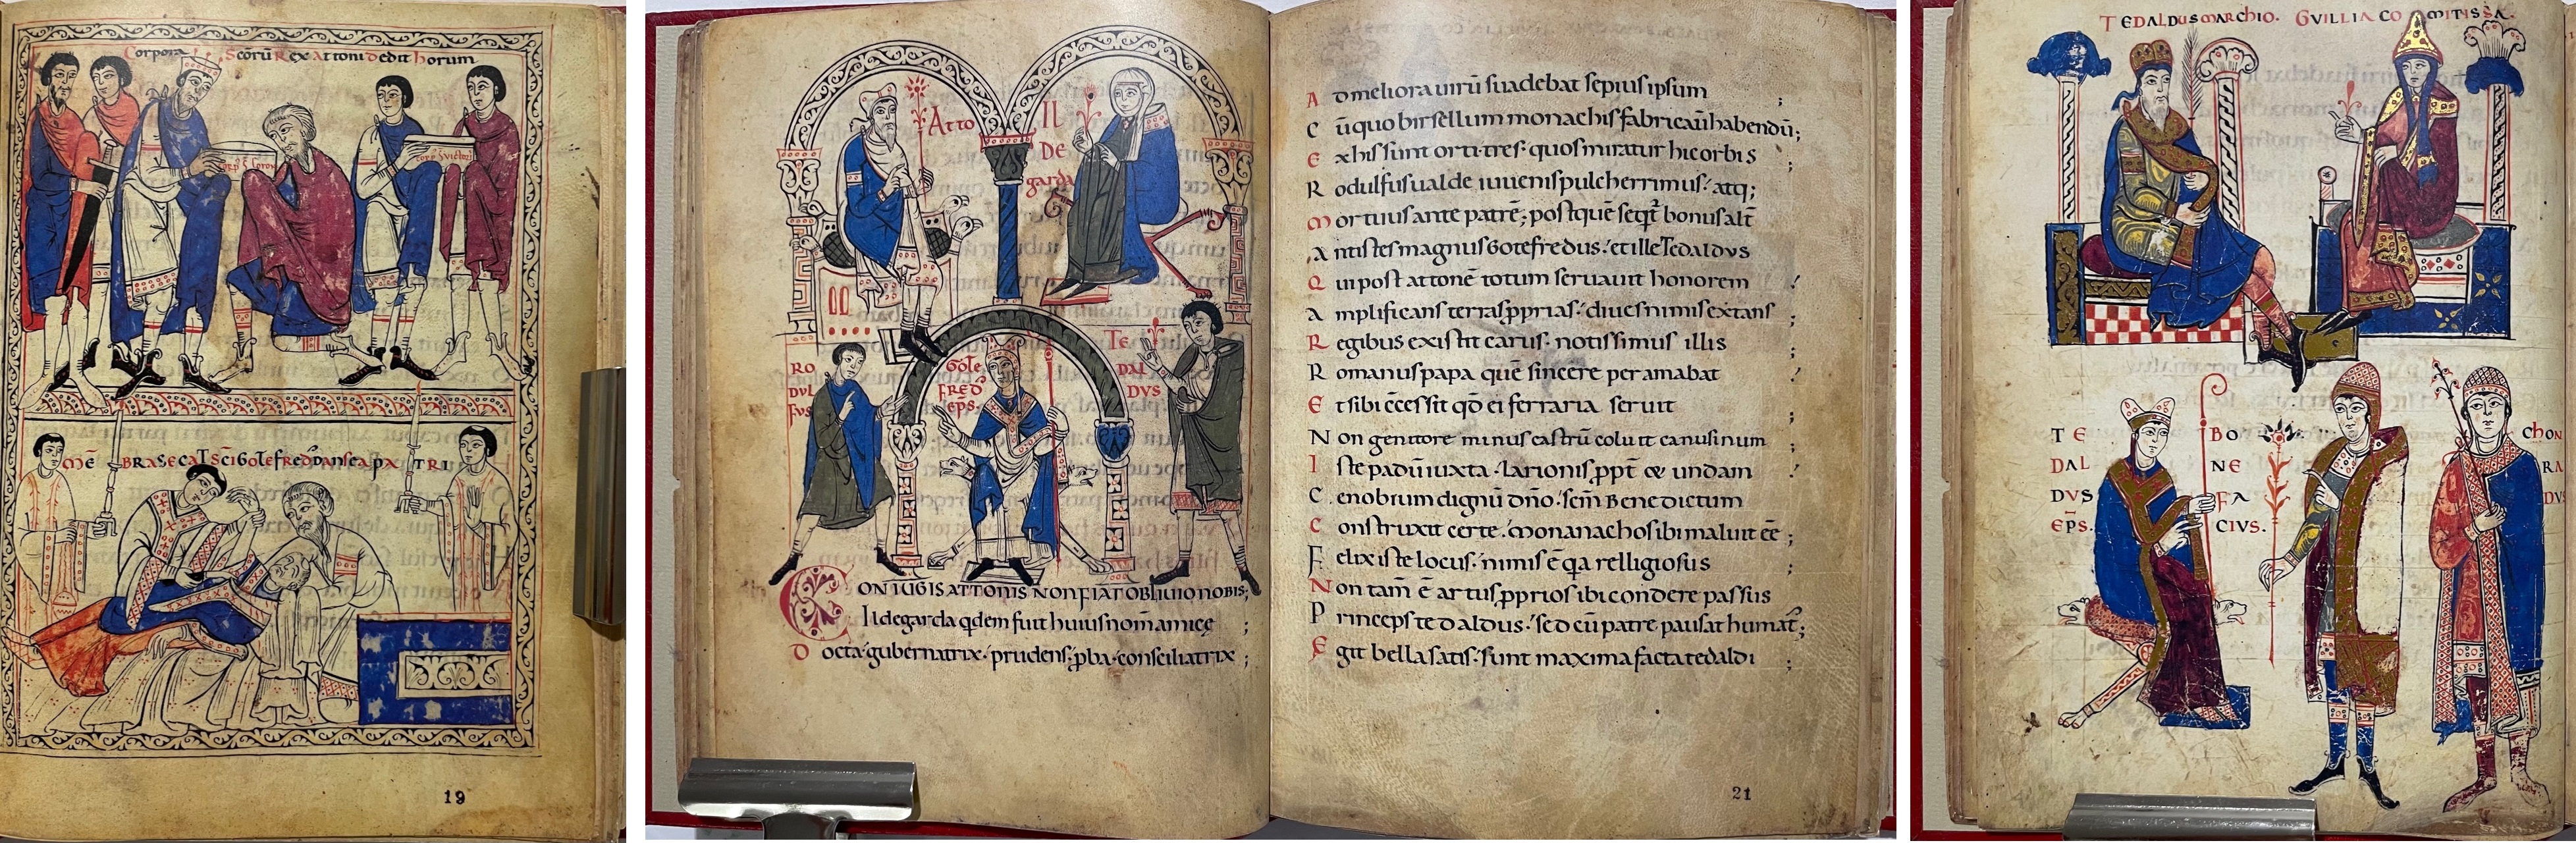 Corpora Scorū Rex Attoni dedit horum
corp⁹ S. Coron
corp⁹ S. Victori
MĒBRA SECAT SCI GOTEFREDꝰ DANS EA PATRI
19
Atto
IL
DE
garda
RO
DVL
FVS
GOTE
FREDꝰ
EPS.
TE
DAL
DVS
CONIUGIS ATTONIS NON FIAT OBLIUIO NOBIS;
Ildegarda qdem fuit huius nom amicę ;
Docta gubernatrix. prudens, pba consiliatrix ;
Ad meliora uirū suadebat sepius ipsum ;
Cū quo birsellum monachis fabricaū habendū;
Ex his sunt orti tres. quos miratur hic orbis ;
Rodulfus ualde iuuenis pulcherrimus. atq;
Mortuus ante patrē; post quē seqt bonus alt
Antistes magnus Gotefredus. et ille Tedaldus
Qui post attonē totum seruauit honorem
Amplificans terras pprias. diues nimis extans ;
Regibus existit carus. notissimus illis ;
Romanus papa quē sincere peramabat
Et sibi cēcessit qd ei ferraria seruit ;
Non genitore minus castrū coluit canusinum ;
Iste padū iuxta. larionis ppt & undam
Cenobium dignū dno. scm Benedictum
Construxit certe. monanachos ibi maluit eē ;
Felix iste locus. nimis ē qa relligiosus ;
Non tam ē artus pprios ibi condere passus
Princeps tedaldus. sed cū patre pausat humat;
Egit bella satis. sunt maxima facta tedaldi ;
21
TEDALDUS MARCHIO. GUILLIA COMITISSA.
TE
DAL
DVS
EPS.
BO
NE
FA
CIVS.
CHON
RA
DVS